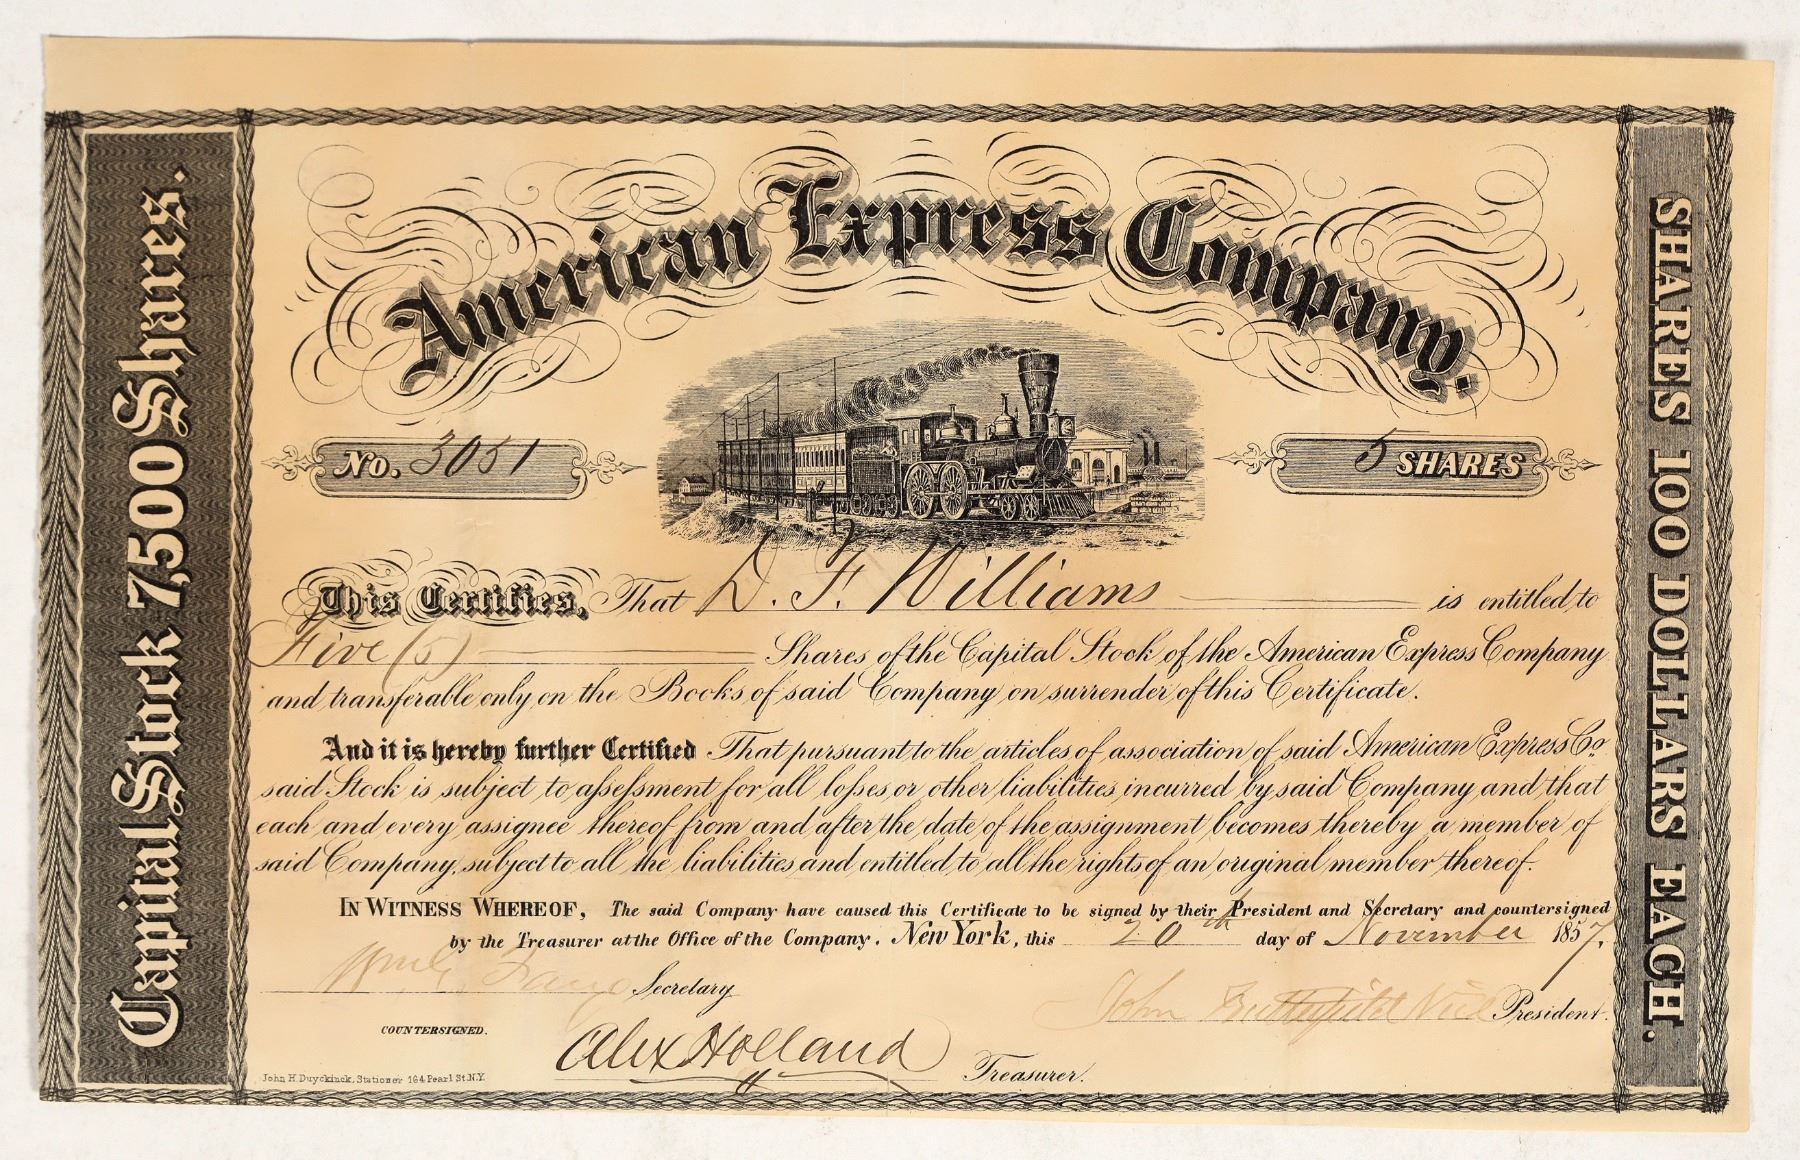 American Express Company.
Capital Stock 7,500 Shares.
SHARES 100 DOLLARS EACH.
No. 3051
5 SHARES
This Certifies, That D. F. Williams is entitled to
Five (5) Shares of the Capital Stock of the American Express Company
and transferable only on the Books of said Company on surrender of this Certificate.
And it is hereby further Certified That pursuant to the articles of association of said American Express Co.
said Stock is subject to assessment for all losses or other liabilities incurred by said Company and that
each and every assignee thereof from and after the date of the assignment becomes thereby a member of
said Company, subject to all the liabilities and entitled to all the rights of an original member thereof.
IN WITNESS WHEREOF, The said Company have caused this Certificate to be signed by their President and Secretary and countersigned
by the Treasurer at the Office of the Company. New York, this 20th day of November 1857.
Fargo Secretary
John Butterfield Vice President.
COUNTERSIGNED.
Alex Holland Treasurer.
John H Duyckinck, Stationer 164 Pearl St. N.Y.